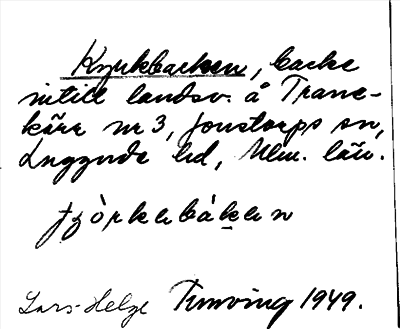 Kyrkbacken, backe
intill landsv. å Trane-
kärr nr 3, Jonstorps sn,
Luggude hd, Mlm. län.
fjörkebåken
Lars-Helge Tunving 1949.